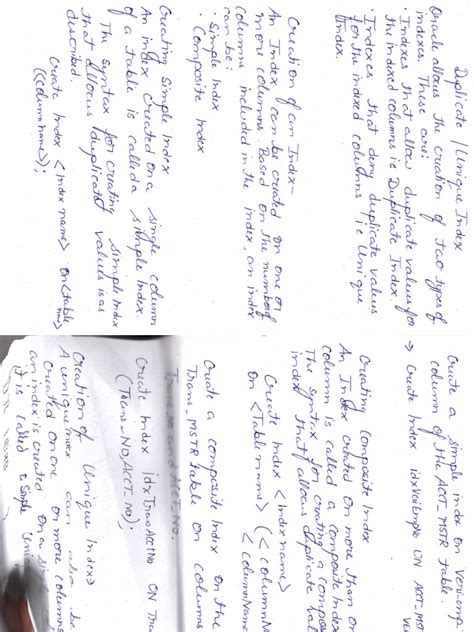 Duplicate / Unique Index
Oracle allows the creation of two types of
indexes. These are:
• Indexes that allow duplicate values for
the indexed columns ie Duplicate Index.
• Indexes that deny duplicate values
for the indexed columns i.e Unique
Index.
Creation of an Index-
An Index can be created on one or
more columns. Based on the number of
columns included in the index, an index
can be:
• Simple Index
• Composite Index
Creating Simple Index
An index created on a single column
of a table is called a simple Index.
The syntax for creating simple Index
that allows duplicate values is as
described.
Create Index <Index name> on <table
name>
(<column name>);
Create a simple index on veriemp
column of the ACCT_MSTR table.
→ Create Index idxVeriEmpNo ON ACCT_MST
VER
Creating Composite Index
An Index created on more than on
column is called a composite Index
The syntax for creating a compos
index that allows duplicate val
Create Index <Index name>
on <Table name> (<columnN
<columnName
Create a composite Index on the
Trans_MSTR table on columns
Trans_No and ACCT_No.
Create Index idxTransAcctNo ON Tra
(Trans_No, ACCT_No);
Creation of Unique Index
A unique index can also be
created on one or more columns
an index is created on a si
it is called a simple uni